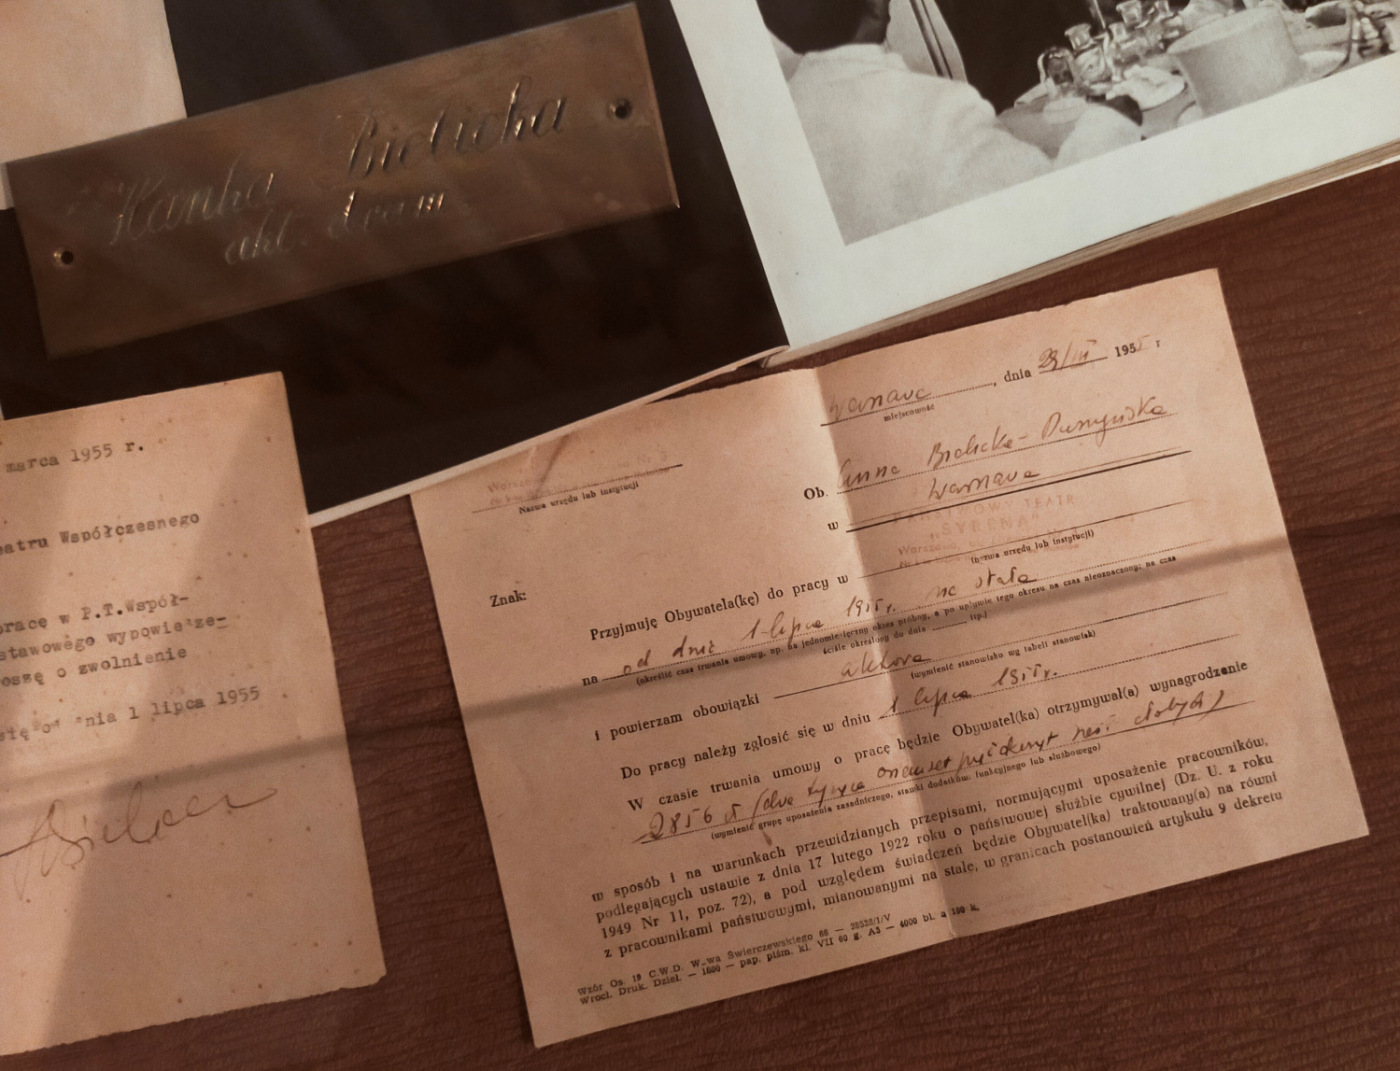 Hanka Bielicka
akt. dram
marca 1955 r.
eatru Współczesnego
pracę w P.T.Współ-
stawowego wypowie ze-
oszę o zwolnienie
się od dnia 1 lipca 1955
Bielicka
Warszawa, dnia 29/III 1955 r
miejscowość
Nazwa urzędu lub instytucji
Ob. Anna Bielicka-
w Warszawa
PAŃSTWOWY TEATR
"SYRENA"
Warszawa,
(nazwa urzędu lub instytucji)
Znak:
Przyjmuję Obywatela(kę) do pracy w
na od dnia 1-lipca 1955r. na stałe
(określić czas trwania umowy, np. na jednomiesięczny okres próbny, a po upływie tego okresu na czas nieoznaczony; na czas
ściśle określony do dnia itp.)
i powierzam obowiązki aktora
(wymienić stanowisko wg tabeli stanowisk)
Do pracy należy zgłosić się w dniu 1 lipca 1955r.
W czasie trwania umowy o pracę będzie Obywatel(ka) otrzymywał(a) wynagrodzenie
2856 zł (dwa tysiące osiemset pięćdziesiąt sześć złotych)
(wymienić grupę uposażenia zasadniczego, stawki dodatków: funkcyjnego lub służbowego)
w sposób i na warunkach przewidzianych przepisami, normującymi uposażenie pracowników,
podlegających ustawie z dnia 17 lutego 1922 roku o państwowej służbie cywilnej (Dz. U. z roku
1949 Nr 11, poz. 72), a pod względem świadczeń będzie Obywatel(ka) traktowany(a) na równi
z pracownikami państwowymi, mianowanymi na stałe, w granicach postanowień artykułu 9 dekretu
Wzór Os. 19 C.W.D. W-wa Świerczewskiego 66 — 28528/1/V
Wrocł. Druk. Dział. — 1600 — pap. piśm. kl. VII 60 g. A5 — 4000 bl. a 100 k.